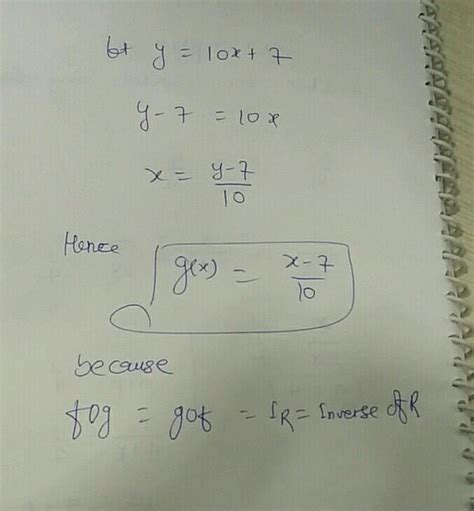 let y = 10x + 7
y - 7 = 10x
x = \frac{y-7}{10}
Hence g(x) = \frac{x-7}{10}
because
fog = gof = I_R = Inverse of R